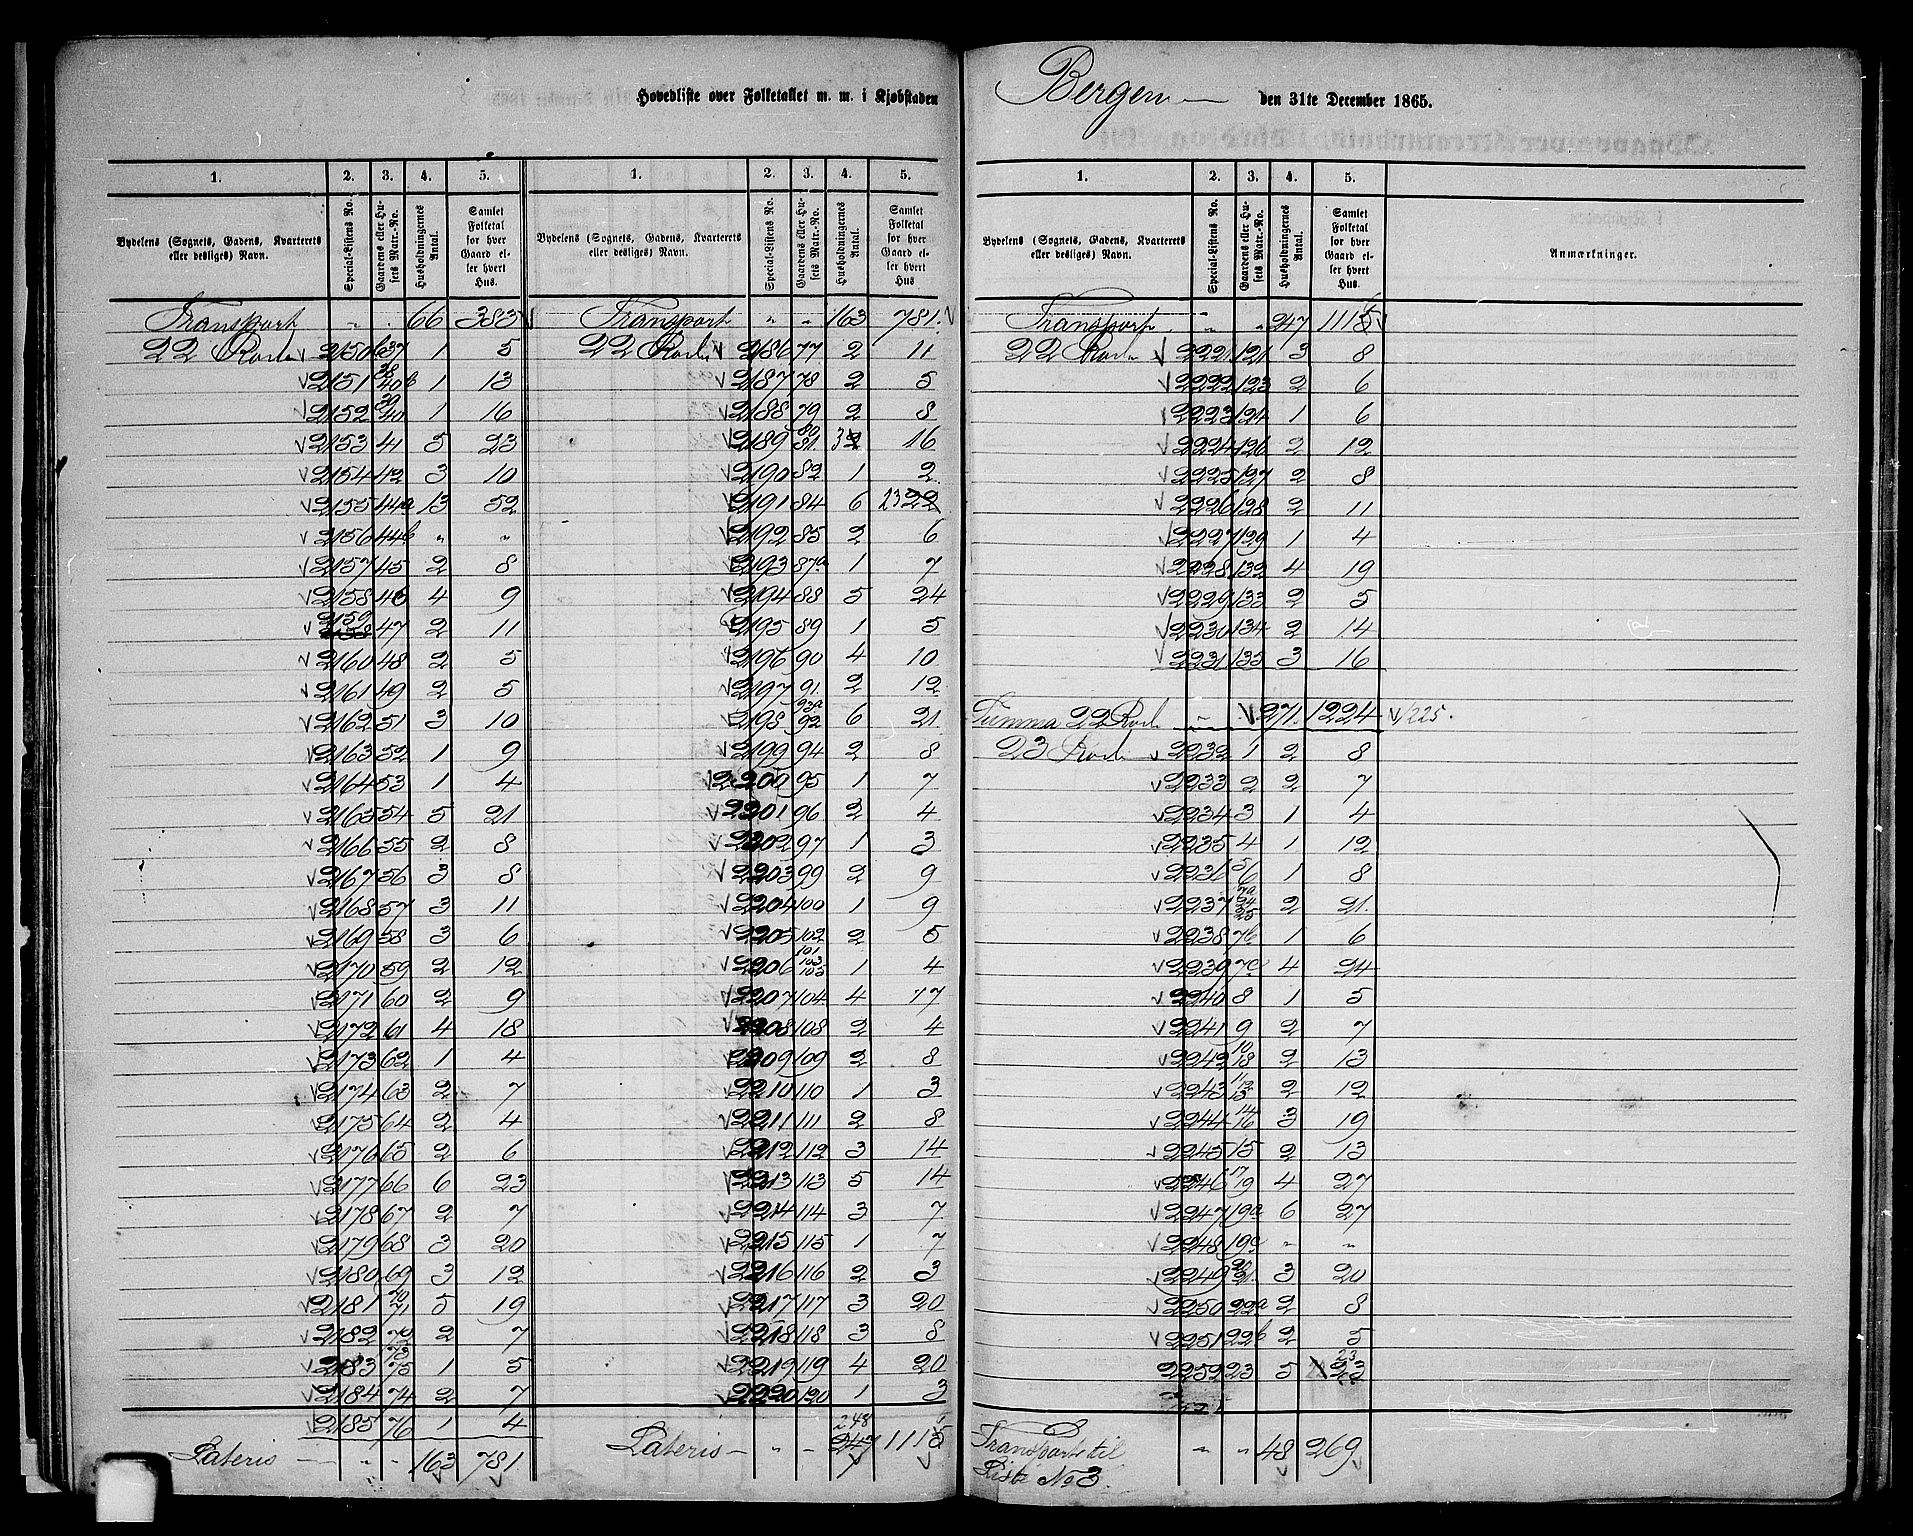 Hovedliste over Folketallet m. m. i Kjøbstaden Bergen den 31te December 1865.
1. 2. 3. 4. 5.
Bydelens (Sognets, Gadens, Kvarterets eller desliges) Navn. Special-Listens No. Gaardens eller Husets Matr.-No. Husholdningernes Antal. Samlet Folketal for hver Gaard eller hvert Hus.
Transport " " 66 383
22 Rode 2150 637 1 5
2151 38 40b 1 13
2152 39 40 1 16
2153 41 5 23
2154 42 3 10
2155 44a 13 52
2156 44b " "
2157 45 2 8
2158 46 4 9
2159 47 2 11
2160 48 2 5
2161 49 2 5
2162 51 3 10
2163 52 1 9
2164 53 1 4
2165 54 5 21
2166 55 2 8
2167 56 3 8
2168 57 3 11
2169 58 3 6
2170 59 2 12
2171 60 2 9
2172 61 4 18
2173 62 1 4
2174 63 2 7
2175 64 2 4
2176 65 2 6
2177 66 6 23
2178 67 2 7
2179 68 3 20
2180 69 3 12
2181 70 71 5 19
2182 72 2 7
2183 73 75 1 5
2184 74 2 7
2185 76 1 4
Lateris " " 163 781
1. 2. 3. 4. 5.
Bydelens (Sognets, Gadens, Kvarterets eller desliges) Navn. Special-Listens No. Gaardens eller Husets Matr.-No. Husholdningernes Antal. Samlet Folketal for hver Gaard eller hvert Hus
Transport " " 163 781.
22 Rode 2186 77 2 11
2187 78 2 5
2188 79 2 8
2189 80 81. 3 2 16
2190 82 1 2
2191 84 6 23 22
2192 85 2 6
2193 87a 1 7
2194 88 5 24
2195 89 1 5
2196 90 4 10
2197 91. 2 12
2198 93a 92 6 21
2199 94 2 8
2200 95 1 7
2201 96 2 4
2202 97 1 3
2203 99 2 9
2204 100 1 9
2205 102 2 5
2206 101 103 105 1 4
2207 104 4 17
2208 108 2 4
2209 109 2 8
2210 110 1 3
2211 111 2 8
2212 112 3 14
2213 113 5 14
2214 114 3 7
2215 115 1 7
2216 116 2 3
2217 117 3 20
2218 118 3 8
2219 119 4 20
2220 120 1 3
Lateris " " 248 247 1115
1. 2. 3. 4. 5.
Bydelens (Sognets, Gadens, Kvarterets eller desliges) Navn. Special-Listens No. Gaardens eller Husets Matr.-No. Husholdningernes Antal. Samlet Folketal for hver Gaard eller hvert Hus. Anmærkninger.
Transport " " 247 1115
22 Rode 2221 121 3 8
2222 123 2 6
2223 124 1 6
2224 126 2 12
2225 127 2 8
2226 128 2 11
2227 129 1 4
2228 132 4 19
2229 133 2 5
2230 134 2 14
2231 135 3 16
Summa 22 Rode " " 271. 1224 1225.
23 Rode 2232 1 2 8
2233 2 2 7
2234 3 1 4
2235 4 1 12
2236 5 6 1 8
2237 7a 24 25 2 21.
2238 7b 1 6
2239 7c 4 24
2240 8 1 5
2241 9 2 7
2242 10 18 2 13
2243 11 12 13 2 12
2244 14 16 3 19
2245 15 2 13
2246 17 19 4 27
2247 19a 6 27
2248 19c " "
2249 20 21. 3 20
2250 22a 2 8
2251 22b 2 5
2252 23 5 23 23
Transporte til Liste No 3. " " 48 269